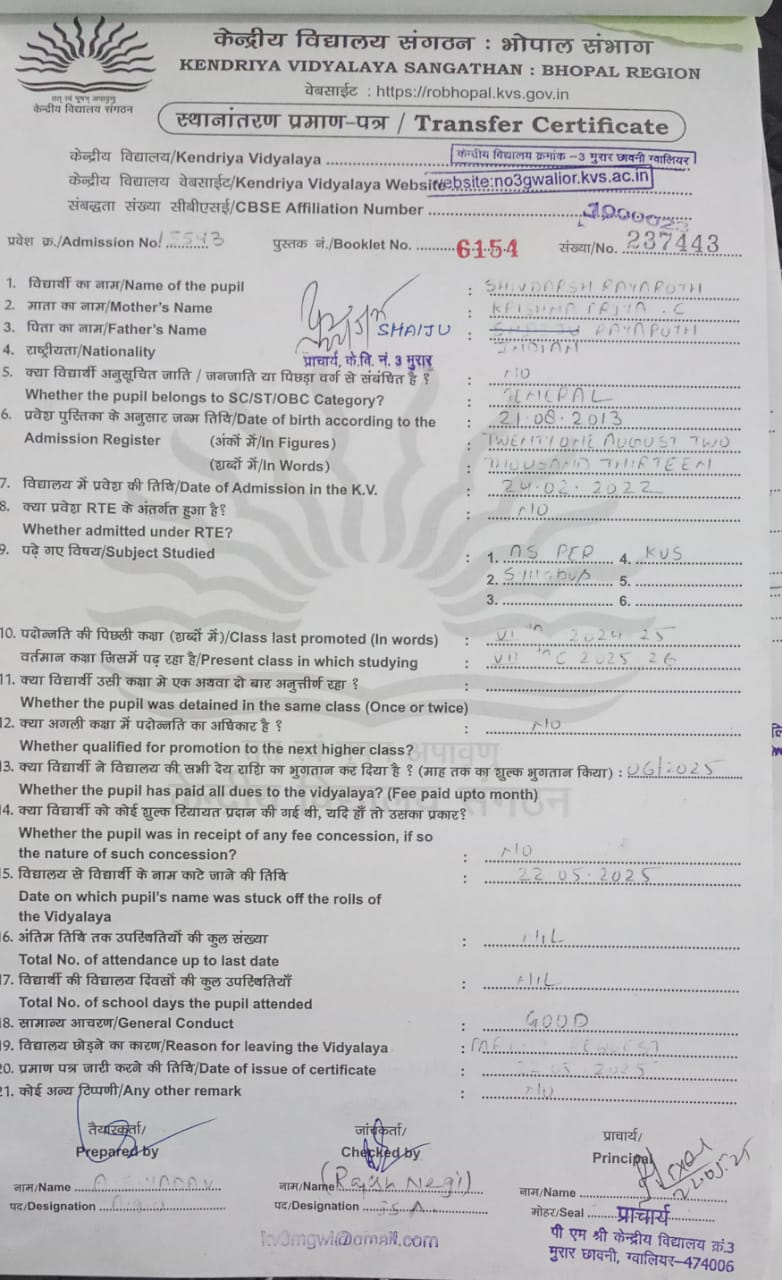 सत् त्वं पूषन् अपावृणु
केन्द्रीय विद्यालय संगठन
केन्द्रीय विद्यालय संगठन : भोपाल संभाग
KENDRIYA VIDYALAYA SANGATHAN : BHOPAL REGION
वेबसाईट : https://robhopal.kvs.gov.in
स्थानांतरण प्रमाण-पत्र / Transfer Certificate
केन्द्रीय विद्यालय/Kendriya Vidyalaya केन्द्रीय विद्यालय क्रमांक -3 मुरार छावनी ग्वालियर
केन्द्रीय विद्यालय वेबसाईट/Kendriya Vidyalaya Website ebsite:no3gwalior.kvs.ac.in
संबद्धता संख्या सीबीएसई/CBSE Affiliation Number 1000023
प्रवेश क्र./Admission No. 15543 पुस्तक नं./Booklet No. 6154 संख्या/No. 237443
1. विद्यार्थी का नाम/Name of the pupil : SHIVDARSH RAYAROTH
2. माता का नाम/Mother's Name : KRISHNA PRIYA .C
3. पिता का नाम/Father's Name SHAIJU : RAYAROTH
4. राष्ट्रीयता/Nationality प्राचार्य, के.वि. नं. 3 मुरार : INDIAN
5. क्या विद्यार्थी अनुसूचित जाति / जनजाति या पिछड़ा वर्ग से संबंधित है ? : NO
Whether the pupil belongs to SC/ST/OBC Category? : GENERAL
6. प्रवेश पुस्तिका के अनुसार जन्म तिथि/Date of birth according to the : 21.08.2013
Admission Register (अंकों में/In Figures) : TWENTY ONE AUGUST TWO
(शब्दों में/In Words) : THOUSAND THIRTEEN
7. विद्यालय में प्रवेश की तिथि/Date of Admission in the K.V. : 24.02.2022
8. क्या प्रवेश RTE के अंतर्गत हुआ है? : NO
Whether admitted under RTE?
9. पढ़े गए विषय/Subject Studied : 1. AS PER 4. KVS
2. Syllabus 5.
3. 6.
10. पदोन्नति की पिछली कक्षा (शब्दों में)/Class last promoted (In words) : VI th 2024 25
वर्तमान कक्षा जिसमें पढ़ रहा है/Present class in which studying : VII th C 2025 26
11. क्या विद्यार्थी उसी कक्षा मे एक अथवा दो बार अनुत्तीर्ण रहा ? :
Whether the pupil was detained in the same class (Once or twice)
12. क्या अगली कक्षा में पदोन्नति का अधिकार है ? : NO
Whether qualified for promotion to the next higher class?
13. क्या विद्यार्थी ने विद्यालय की सभी देय राशि का भुगतान कर दिया है ? (माह तक का शुल्क भुगतान किया) : 06/2025
Whether the pupil has paid all dues to the vidyalaya? (Fee paid upto month)
14. क्या विद्यार्थी को कोई शुल्क रियायत प्रदान की गई थी, यदि हाँ तो उसका प्रकार?
Whether the pupil was in receipt of any fee concession, if so
the nature of such concession? : NO
15. विद्यालय से विद्यार्थी के नाम काटे जाने की तिथि : 22 05.2025
Date on which pupil's name was stuck off the rolls of
the Vidyalaya
16. अंतिम तिथि तक उपस्थितियों की कुल संख्या : NIL
Total No. of attendance up to last date
17. विद्यार्थी की विद्यालय दिवसों की कुल उपस्थितियाँ : NIL
Total No. of school days the pupil attended
18. सामान्य आचरण/General Conduct : GOOD
19. विद्यालय छोड़ने का कारण/Reason for leaving the Vidyalaya : REQUEST
20. प्रमाण पत्र जारी करने की तिथि/Date of issue of certificate : 22 05 2025
21. कोई अन्य टिप्पणी/Any other remark : NO
तैयारकर्ता/ जांचकर्ता/ प्राचार्य/
Prepared by Checked by Principal
22.05.25
नाम/Name नाम/Name (Rajan Negi) नाम/Name
पद/Designation पद/Designation मोहर/Seal प्राचार्य
पी एम श्री केन्द्रीय विद्यालय क्रं.3
मुरार छावनी, ग्वालियर–474006
kv3mgwl@gmail.com